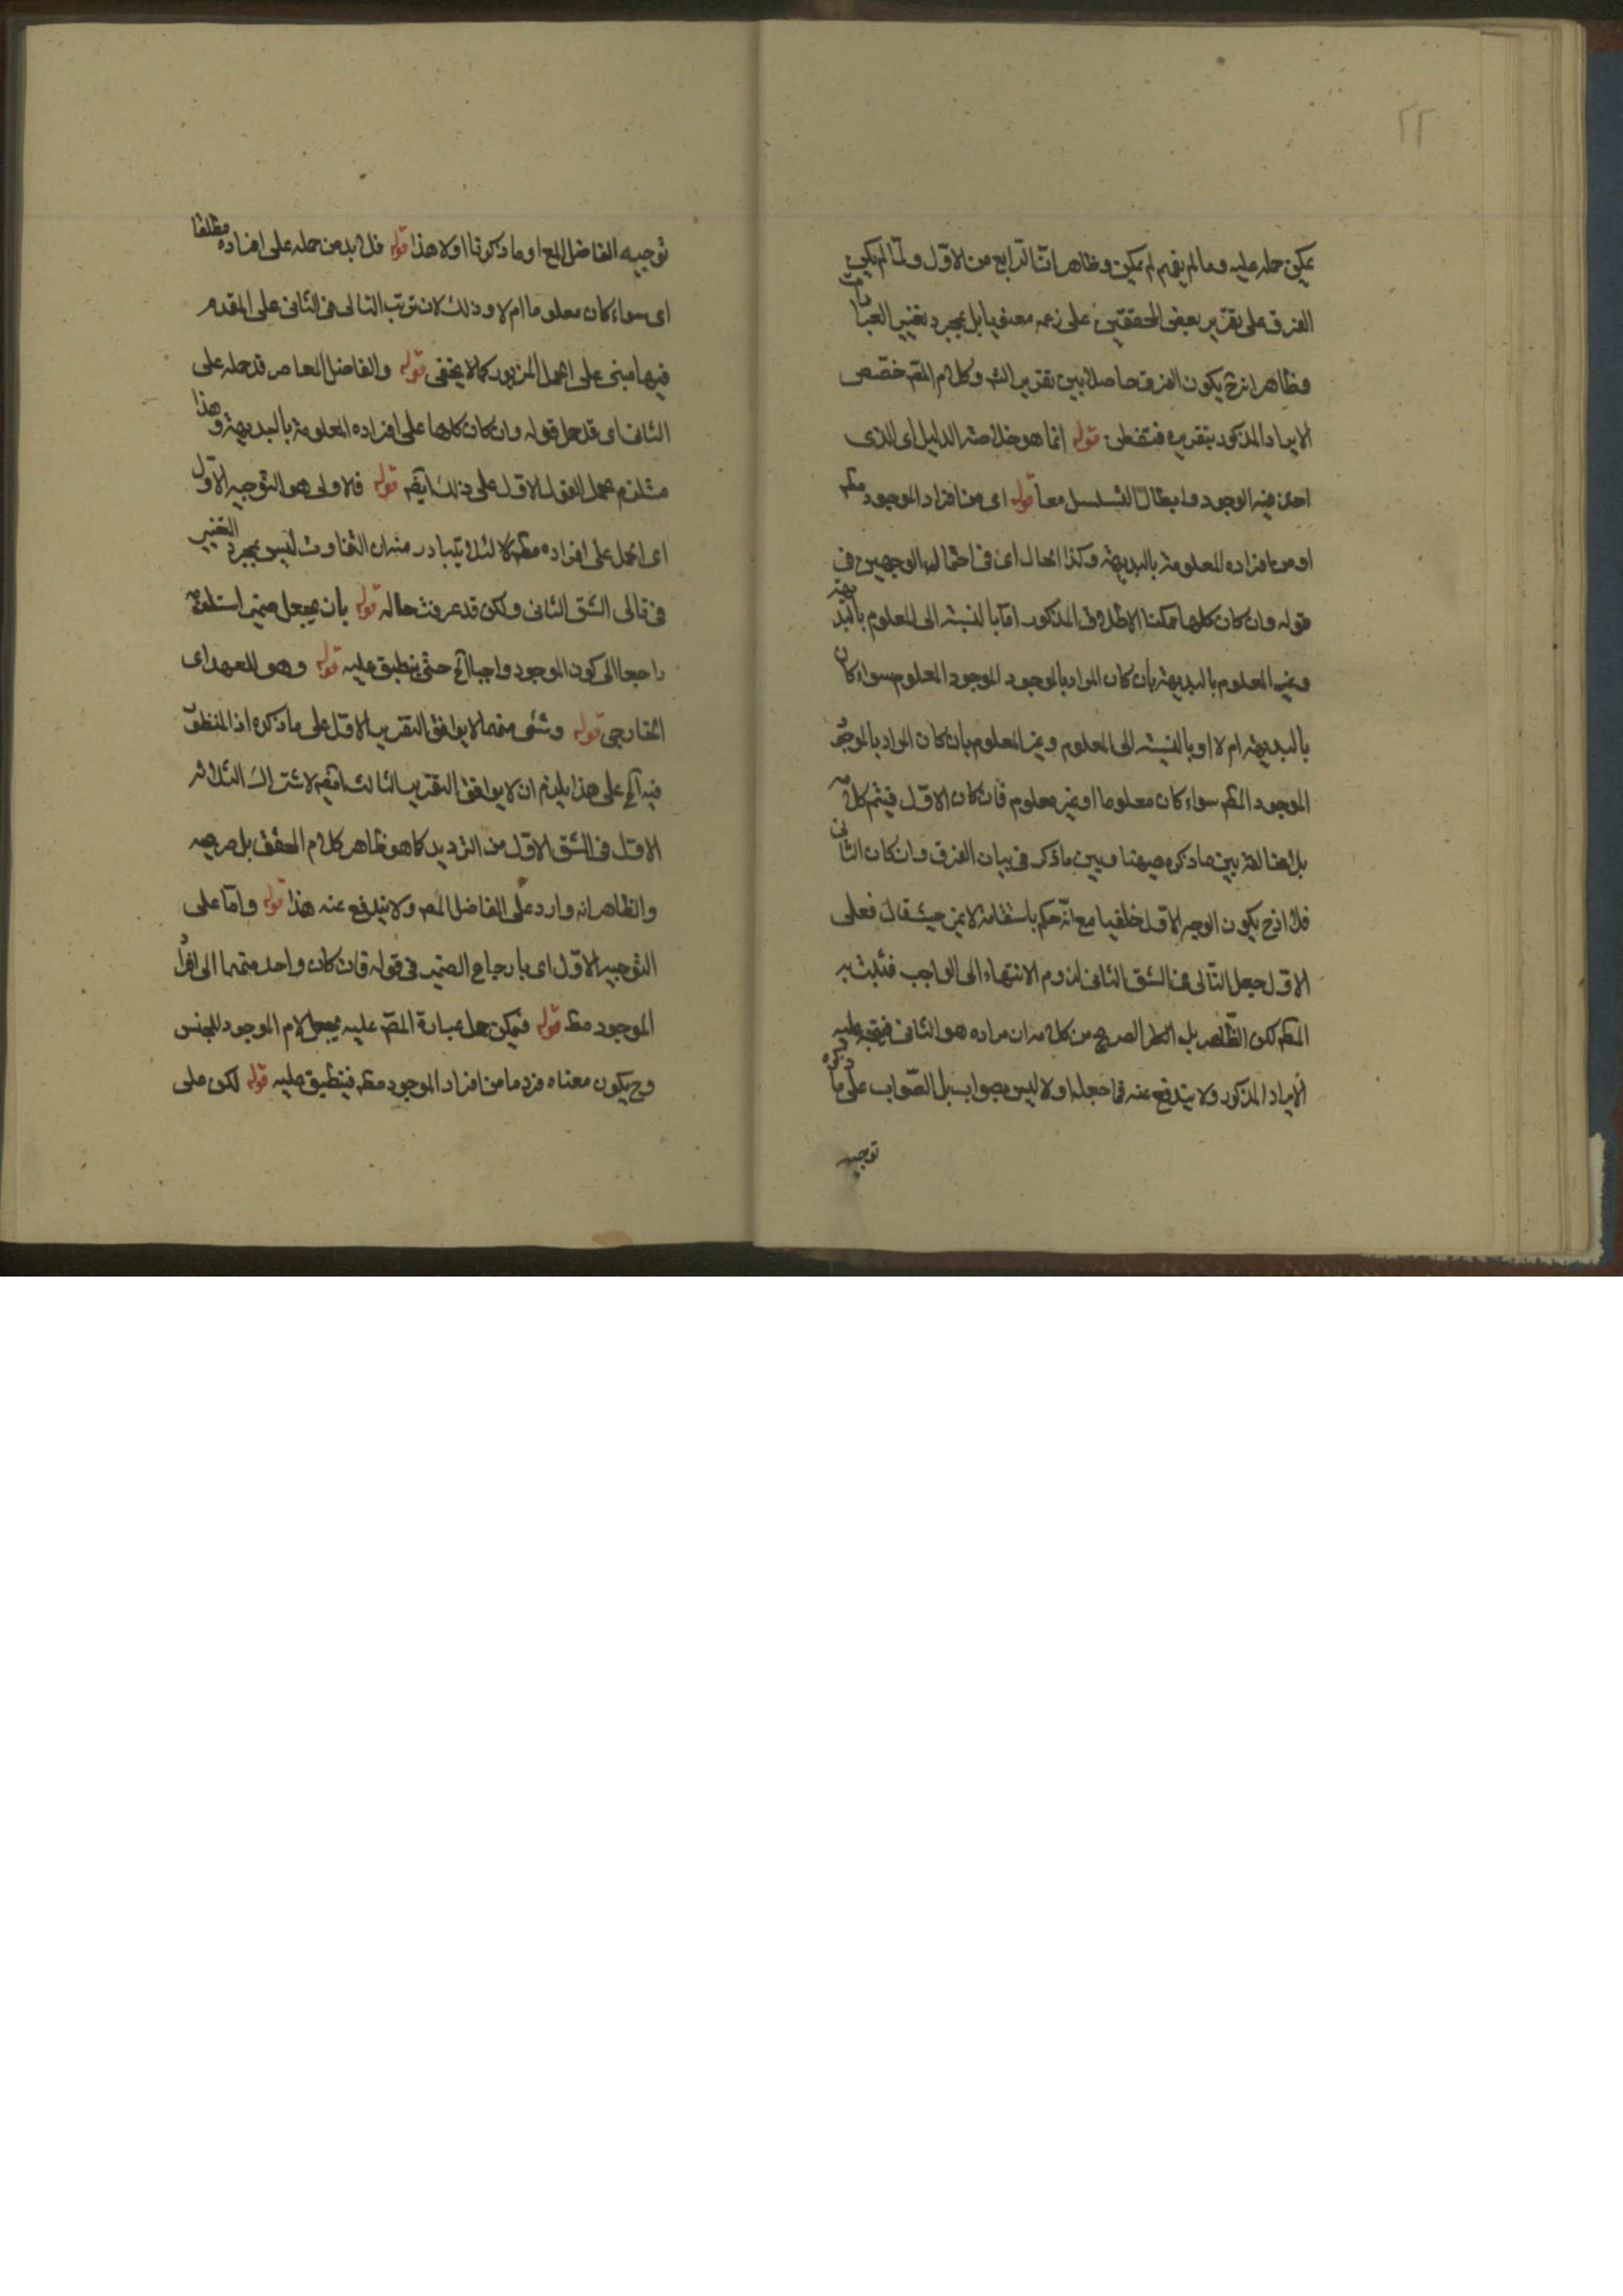 ٢٢
يمكن حمله عليه وما لم يفهم لم يمكن وظاهر ان الرابع من الاول ولما لم يكن
الفرق على تقرير بعض المحققين على زعمه معنويا بل بمجرد تغيير العبارت
وظاهر انه ح يكون الفرق حاصلا بين تقرير الشـ وكلام المصـ خصص
الايراد المذكور بتقريره فتفطن قوله انما هو خلاصة الدليل اى الذى
اخذ فيه الوجود وابطال التسلسل معا قوله اى من افراد الموجود مطـ
او من افراده المعلومة بالبديهة وكذا الحال اى فى احتمال الوجهين فى
قوله وان كان كلها ممكنا الاطلاق المذكور اما بالنسبة الى المعلوم بالبديهة
وغير المعلوم بالبديهة بان كان المراد بالموجود الموجود المعلوم سواء كان
بالبديهة ام لا او بالنسبة الى المعلوم وغير المعلوم بان كان المراد بالموجود
الموجود المطـ سواء كان معلوما او غير معلوم فان كان الاول فيتم كلامه
بل المخالفة بين ما ذكره هيهنا وبين ما ذكر فى بيان الفرق وان كان الثانى
فلا اذ ح يكون الوجه الاول خلفيا مع انه حكم باستقامة لا غير حيث قال فعلى
الاول جعل التالى فى الشق الثانى لزوم الانتهاء الى الواجب فثبت به
المطـ لكن الظاهر بل الصريح من كلامه ان مراده هو الثانى فيتجه عليه
الايراد المذكور ولا يندفع عنه فما جعله اولا ليس بصواب بل الصواب على ما ذكره
توجيه
توجيه الفاضل او ما ذكرنا اولا هذا قوله فلا بد من حمله على افراده مطلقا
اى سواء كان معلوما ام لا وذلك لان ترتب التالى فى الثانى على المقدم
فيها مبنى على الحمل المزبور كما لا يخفى قوله والفاضل المعاصر قد حمله على
الثانى اى قد حمل قوله وان كان كلها على افراده المعلومة بالبديهة وهذا
مستلزم لحمل القول الاول على ذلك ايضـ قوله فالاولى هو التوجيه الاول
اى الحمل على افراده مطـ لئلا يتبادر منه ان التفاوت ليس بمجرد التغيير
فى تالى الشق الثانى ولكن قد عرفت حاله قوله بان يجعل ضمير استلزمه
راجعا الى كون الموجود واجبا الخ حتى ينطبق عليه قوله وهو للعهد اى
الخارجى قوله وشئ منهما لا يوافق التقرير الاول على ما ذكره اذ المنظور
فيه الخ على هذا يلزم ان لا يوافق التقرير الثالث ايضـ لاشتراك الثلاثة
الاول فى الشق الاول من الترديد كما هو ظاهر كلام المحقق بل صريحه
والظاهر انه وارد على الفاضل المعـ ولا يندفع عنه هذا قوله واما على
التوجيه الاول اى بارجاع الضمير فى قوله فان كان واحد منهما الى افراد
الموجود مطـ قوله فيمكن حمل عبارة المصـ عليه بجعل لام الموجود للجنس
وح يكون معناه فرد ما من افراد الموجود مطـ فينطبق عليه قوله لكن على